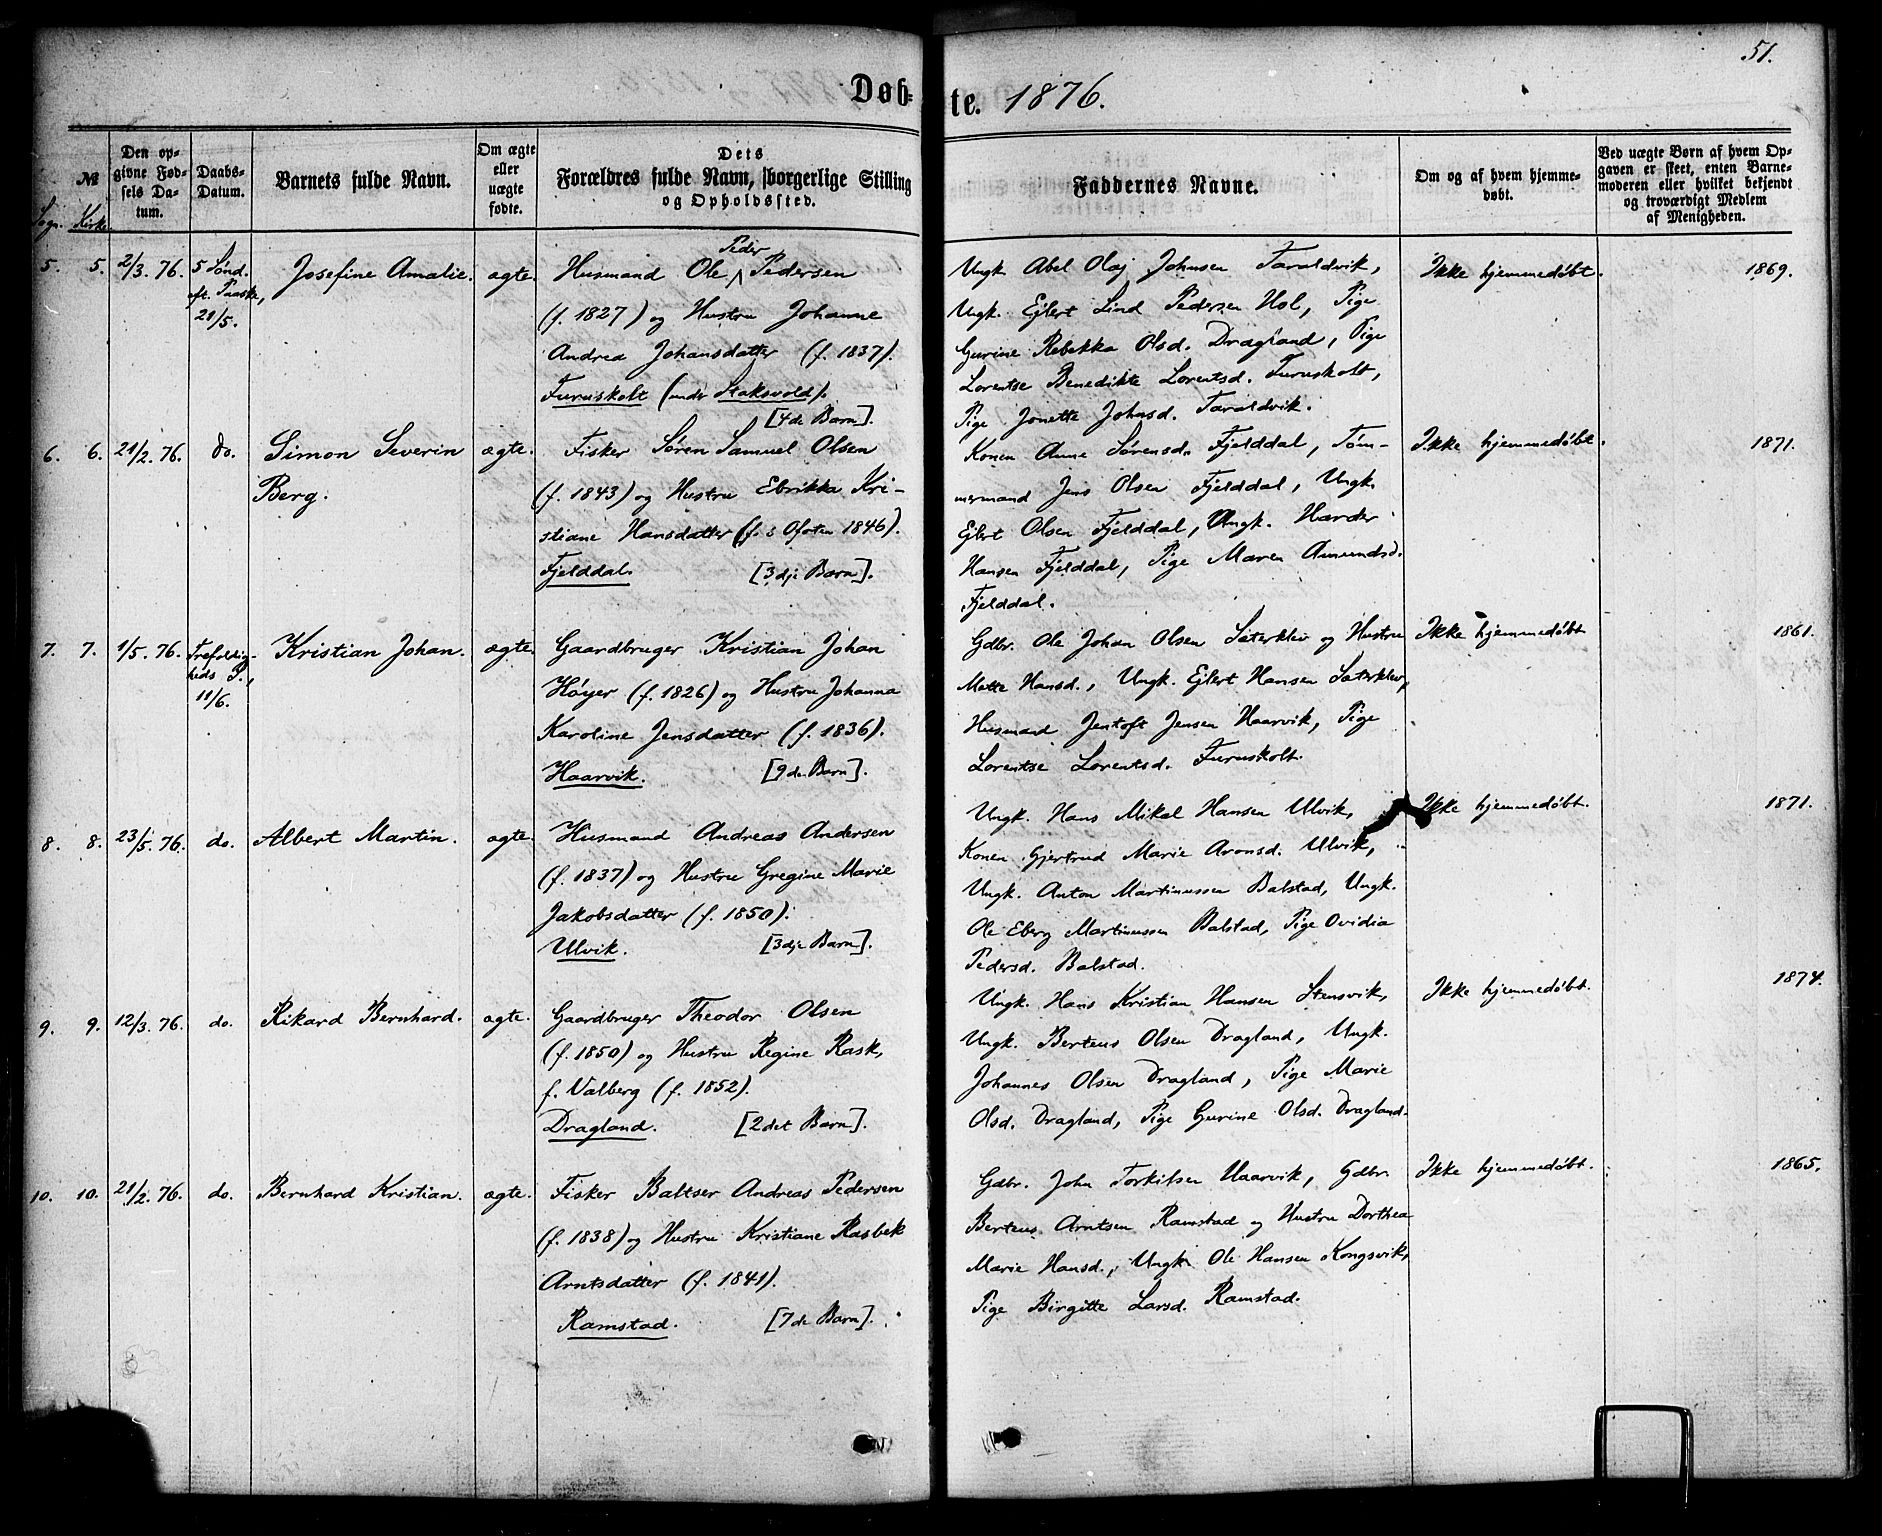 51.
Døb-te. 1876.
№
Sogn. Kirke.
Den op-
givne Fød-
sels Da-
tum.
Daabs-
Datum.
Barnets fulde Navn.
Om ægte
eller
uægte
fødte.
Dets
Forældres fulde Navn, borgerlige Stilling
og Opholdssted.
Faddernes Navne.
Om og af hvem hjemme-
døbt.
Ved uægte Børn af hvem Op-
gaven er skeet, enten Barne-
moderen eller hvilket bekjendt
og troværdigt Medlem
af Menigheden.
5. 5. 2/3. 76.
5 Sønd.
eft. Paaske,
21/5.
Josefine Amalie.
ægte.
Peder
Husmand Ole ^ Pedersen
(f. 1827) og Hustru Johanne
Andrea Johansdatter (f. 1837).
Furuskolt (under Staksvold).
[4de Barn].
Ungk. Abel Olaj Johnsen Taraldvik,
Ungk. Ejlert Lind Pedersen Hol, Pige
Gurine Rebekka Olsd. Dragland, Pige
Lorentse Benedikte Lorentsd. Furuskolt,
Pige Jonette Johnsd. Taraldvik.
Ikke hjemmedøbt.
1869.
6. 6. 21/2. 76. do.
Simon Severin
Berg.
ægte.
Fisker Søren Samuel Olsen
(f. 1843) og Hustru Ebrikka Kri-
stiane Hansdatter (f. i Ofoten 1846).
Fjelddal. [3dje Barn].
Konen Anne Sørensd. Fjelddal, Tøm-
mermand Jens Olsen Fjelddal, Ungk.
Ejlert Olsen Fjelddal, Ungk. Harder
Hansen Fjelddal, Pige Maren Amundsd.
Fjelddal.
Ikke hjemmedøbt.
1871.
7. 7. 1/5. 76.
Trefoldig-
heds S.,
11/6.
Kristian Johan.
ægte.
Gaardbruger Kristian Johan
Høyer (f. 1826) og Hustru Johanna
Karoline Jensdatter (f. 1836).
Haarvik. [9de Barn].
Gdbr. Ole Johan Olsen Sæterklev og Hustru
Mette Hansd., Ungk. Ejlert Hansen Sæterklev,
Husmand Jentoft Jensen Haarvik, Pige
Lorentse Lorentsd. Furuskolt.
Ikke hjemmedøbt
1861.
8. 8. 23/5. 76. do.
Albert Martin.
ægte.
Husmand Andreas Andersen
(f. 1837) og Hustru Gregine Marie
Jakobsdatter (f. 1850).
Ulvik. [3dje Barn].
Ungk. Hans Mikal Hansen Ulvik,
Konen Gjertrud Marie Aronsd. Ulvik,
Ungk. Anton Martinussen Balstad, Ungk.
Ole Eberg Martinussen Balstad, Pige Ovidia
Pedersd. Balstad.
Ikke hjemmedøbt.
1871.
9. 9. 12/3. 76. do.
Rikard Bernhard.
ægte.
Gaardbruger Theodor Olsen
(f. 1850) og Hustru Regine Rask,
f. Valberg (f. 1852).
Dragland. [2det Barn].
Ungk. Hans Kristian Hansen Stensvik,
Ungk. Berteus Olsen Dragland, Ungk.
Johannes Olsen Dragland, Pige Marie
Olsd. Dragland, Pige Gurine Olsd. Dragland.
Ikke hjemmedøbt.
1874.
10. 10. 21/2. 76. do.
Bernhard Kristian.
ægte.
Fisker Baltser Andreas Pedersen
(f. 1838) og Hustru Kristiane Rasbek
Arntsdatter (f. 1841).
Ramstad. [7de Barn].
Gdbr. John Torkilsen Haarvik, Gdbr.
Berteus Arntsen Ramstad og Hustru Dorthea
Marie Hansd., Ungk. Ole Hansen Kongsvik,
Pige Birgitte Larsd. Ramstad.
Ikke hjemmedøbt.
1865.